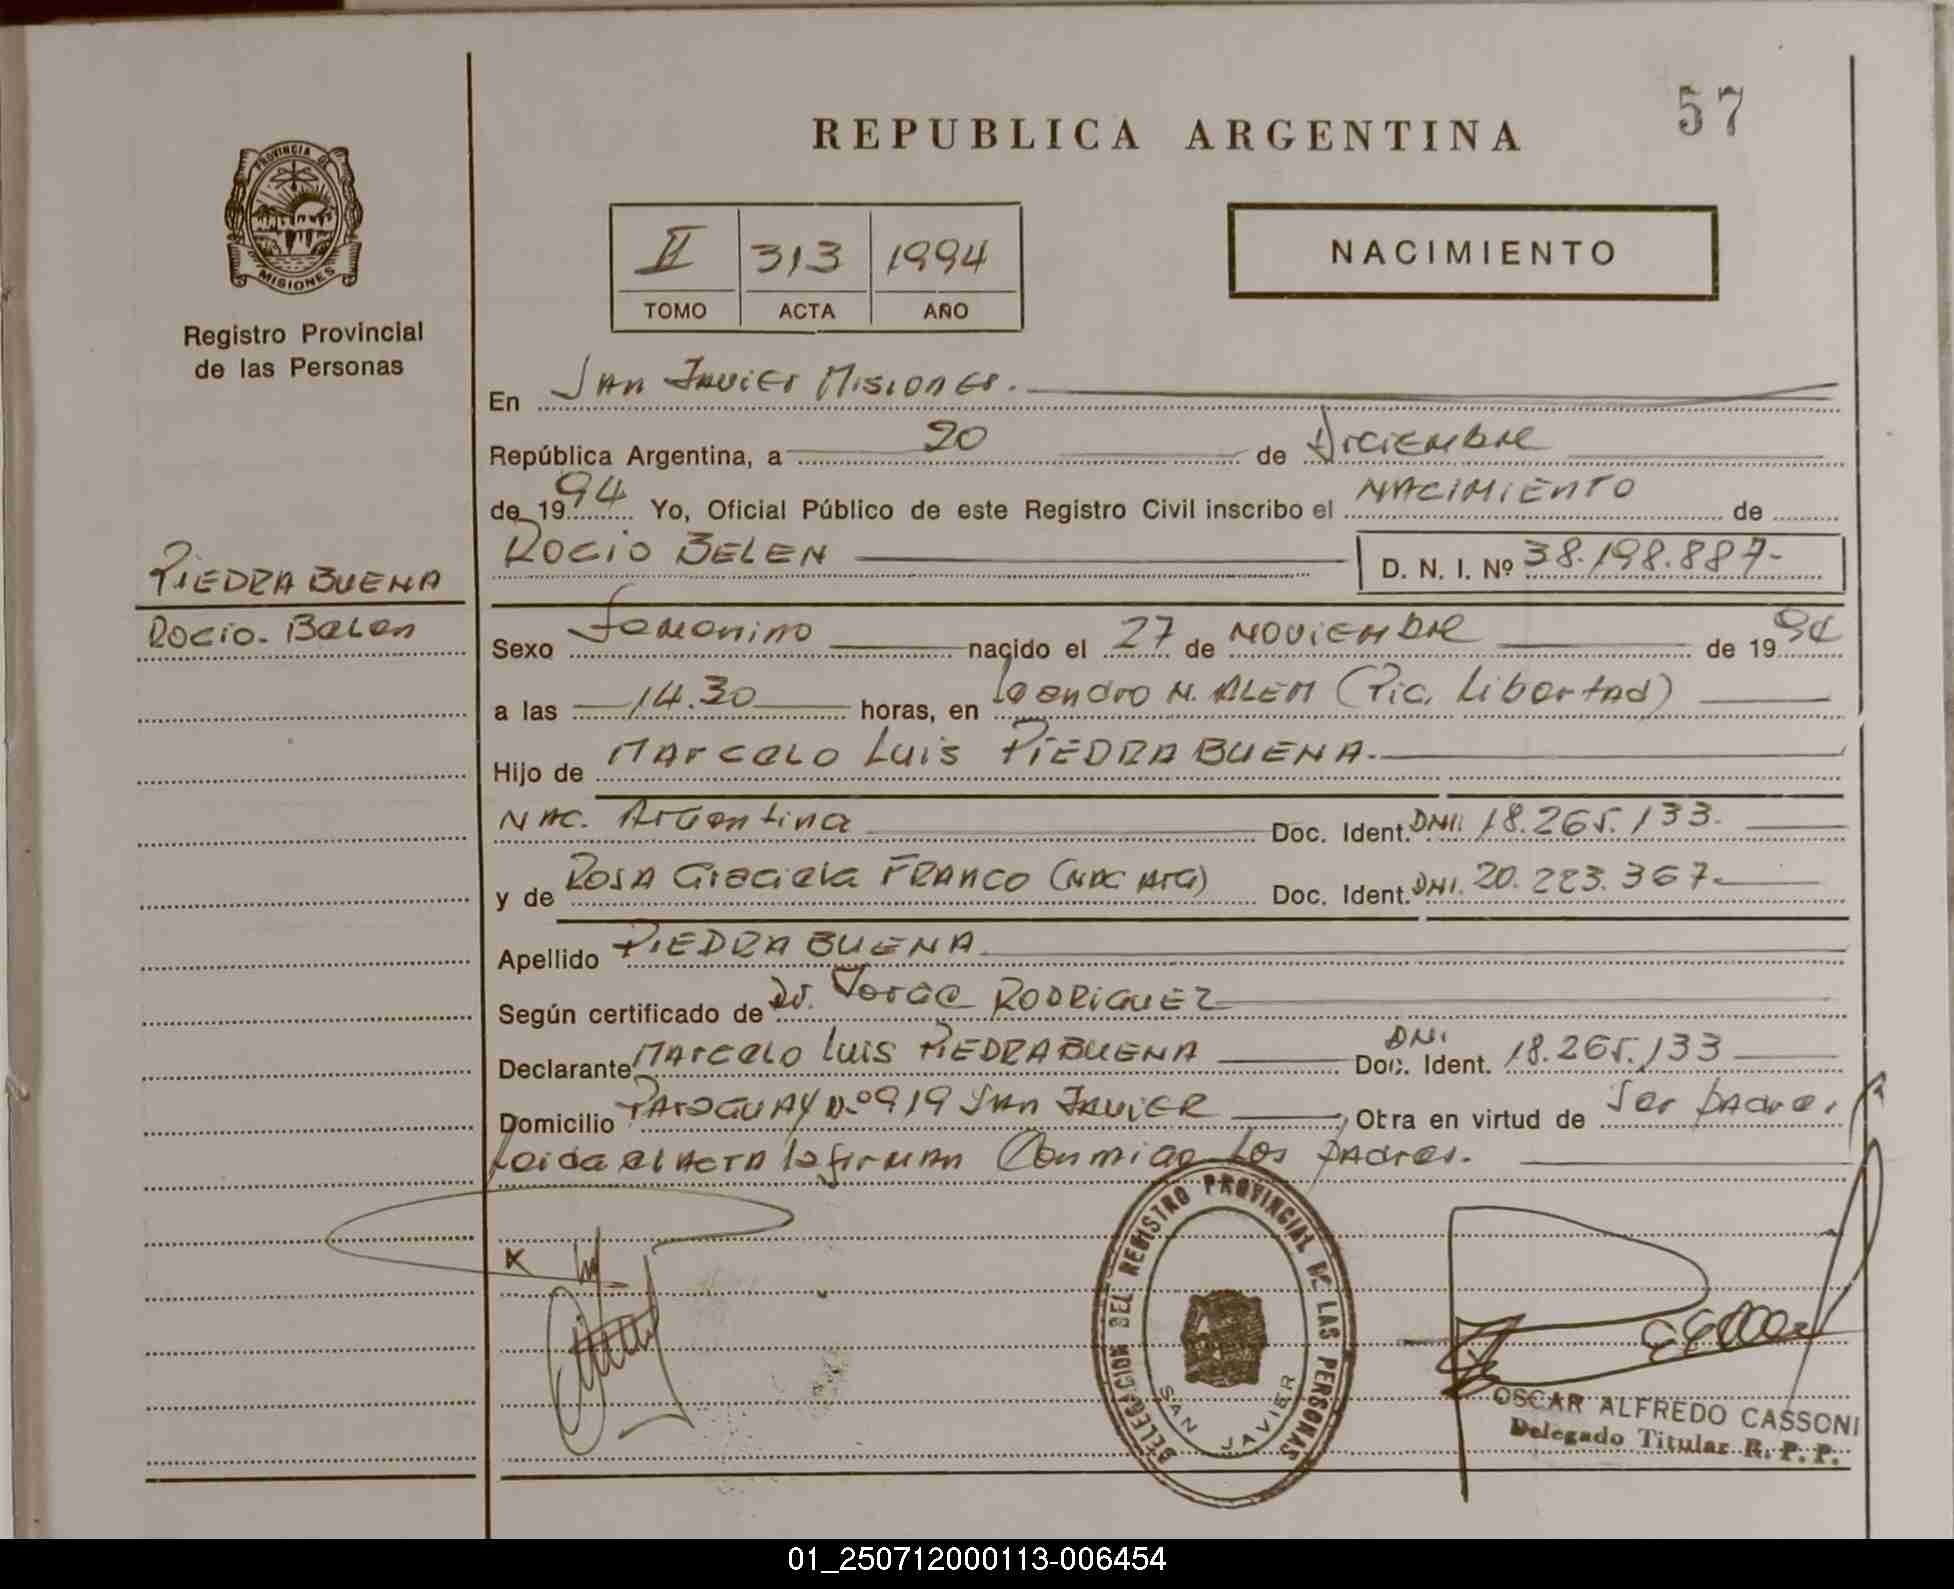 57
REPUBLICA ARGENTINA
PROVINCIA DE
MISIONES
Registro Provincial
de las Personas
II 313 1994
TOMO ACTA AÑO
NACIMIENTO
En San Javier Misiones.
República Argentina, a 20 de Diciembre
de 1994 Yo, Oficial Público de este Registro Civil inscribo el NACIMIENTO de
ROCIO BELEN D. N. I. Nº 38.198.887-
PIEDRABUENA
Rocio. Belen
Sexo Femenino nacido el 27 de NOVIEMBRE de 1994
a las 14.30 horas, en Leandro N. ALEM (Pic. Libertad)
Hijo de MARCELO Luis PIEDRABUENA.
NAC. Argentina Doc. Ident. DNI. 18.265.133.
y de ROSA Graciela FRANCO (NAC ARG) Doc. Ident. DNI. 20.223.367.
Apellido PIEDRABUENA
Según certificado de Dr. Jorge RODRIGUEZ
Declarante MARCELO Luis PIEDRABUENA Doc. Ident. DNI 18.265.133
Domicilio PARAGUAY N.º 919 SAN JAVIER, Otra en virtud de Ser padre.
Leida el ACTA la firman Conmigo Los padres.
DELEGACION DEL REGISTRO PROVINCIAL DE LAS PERSONAS
SAN JAVIER
OSCAR ALFREDO CASSONI
Delegado Titular R. P. P.
01_250712000113-006454